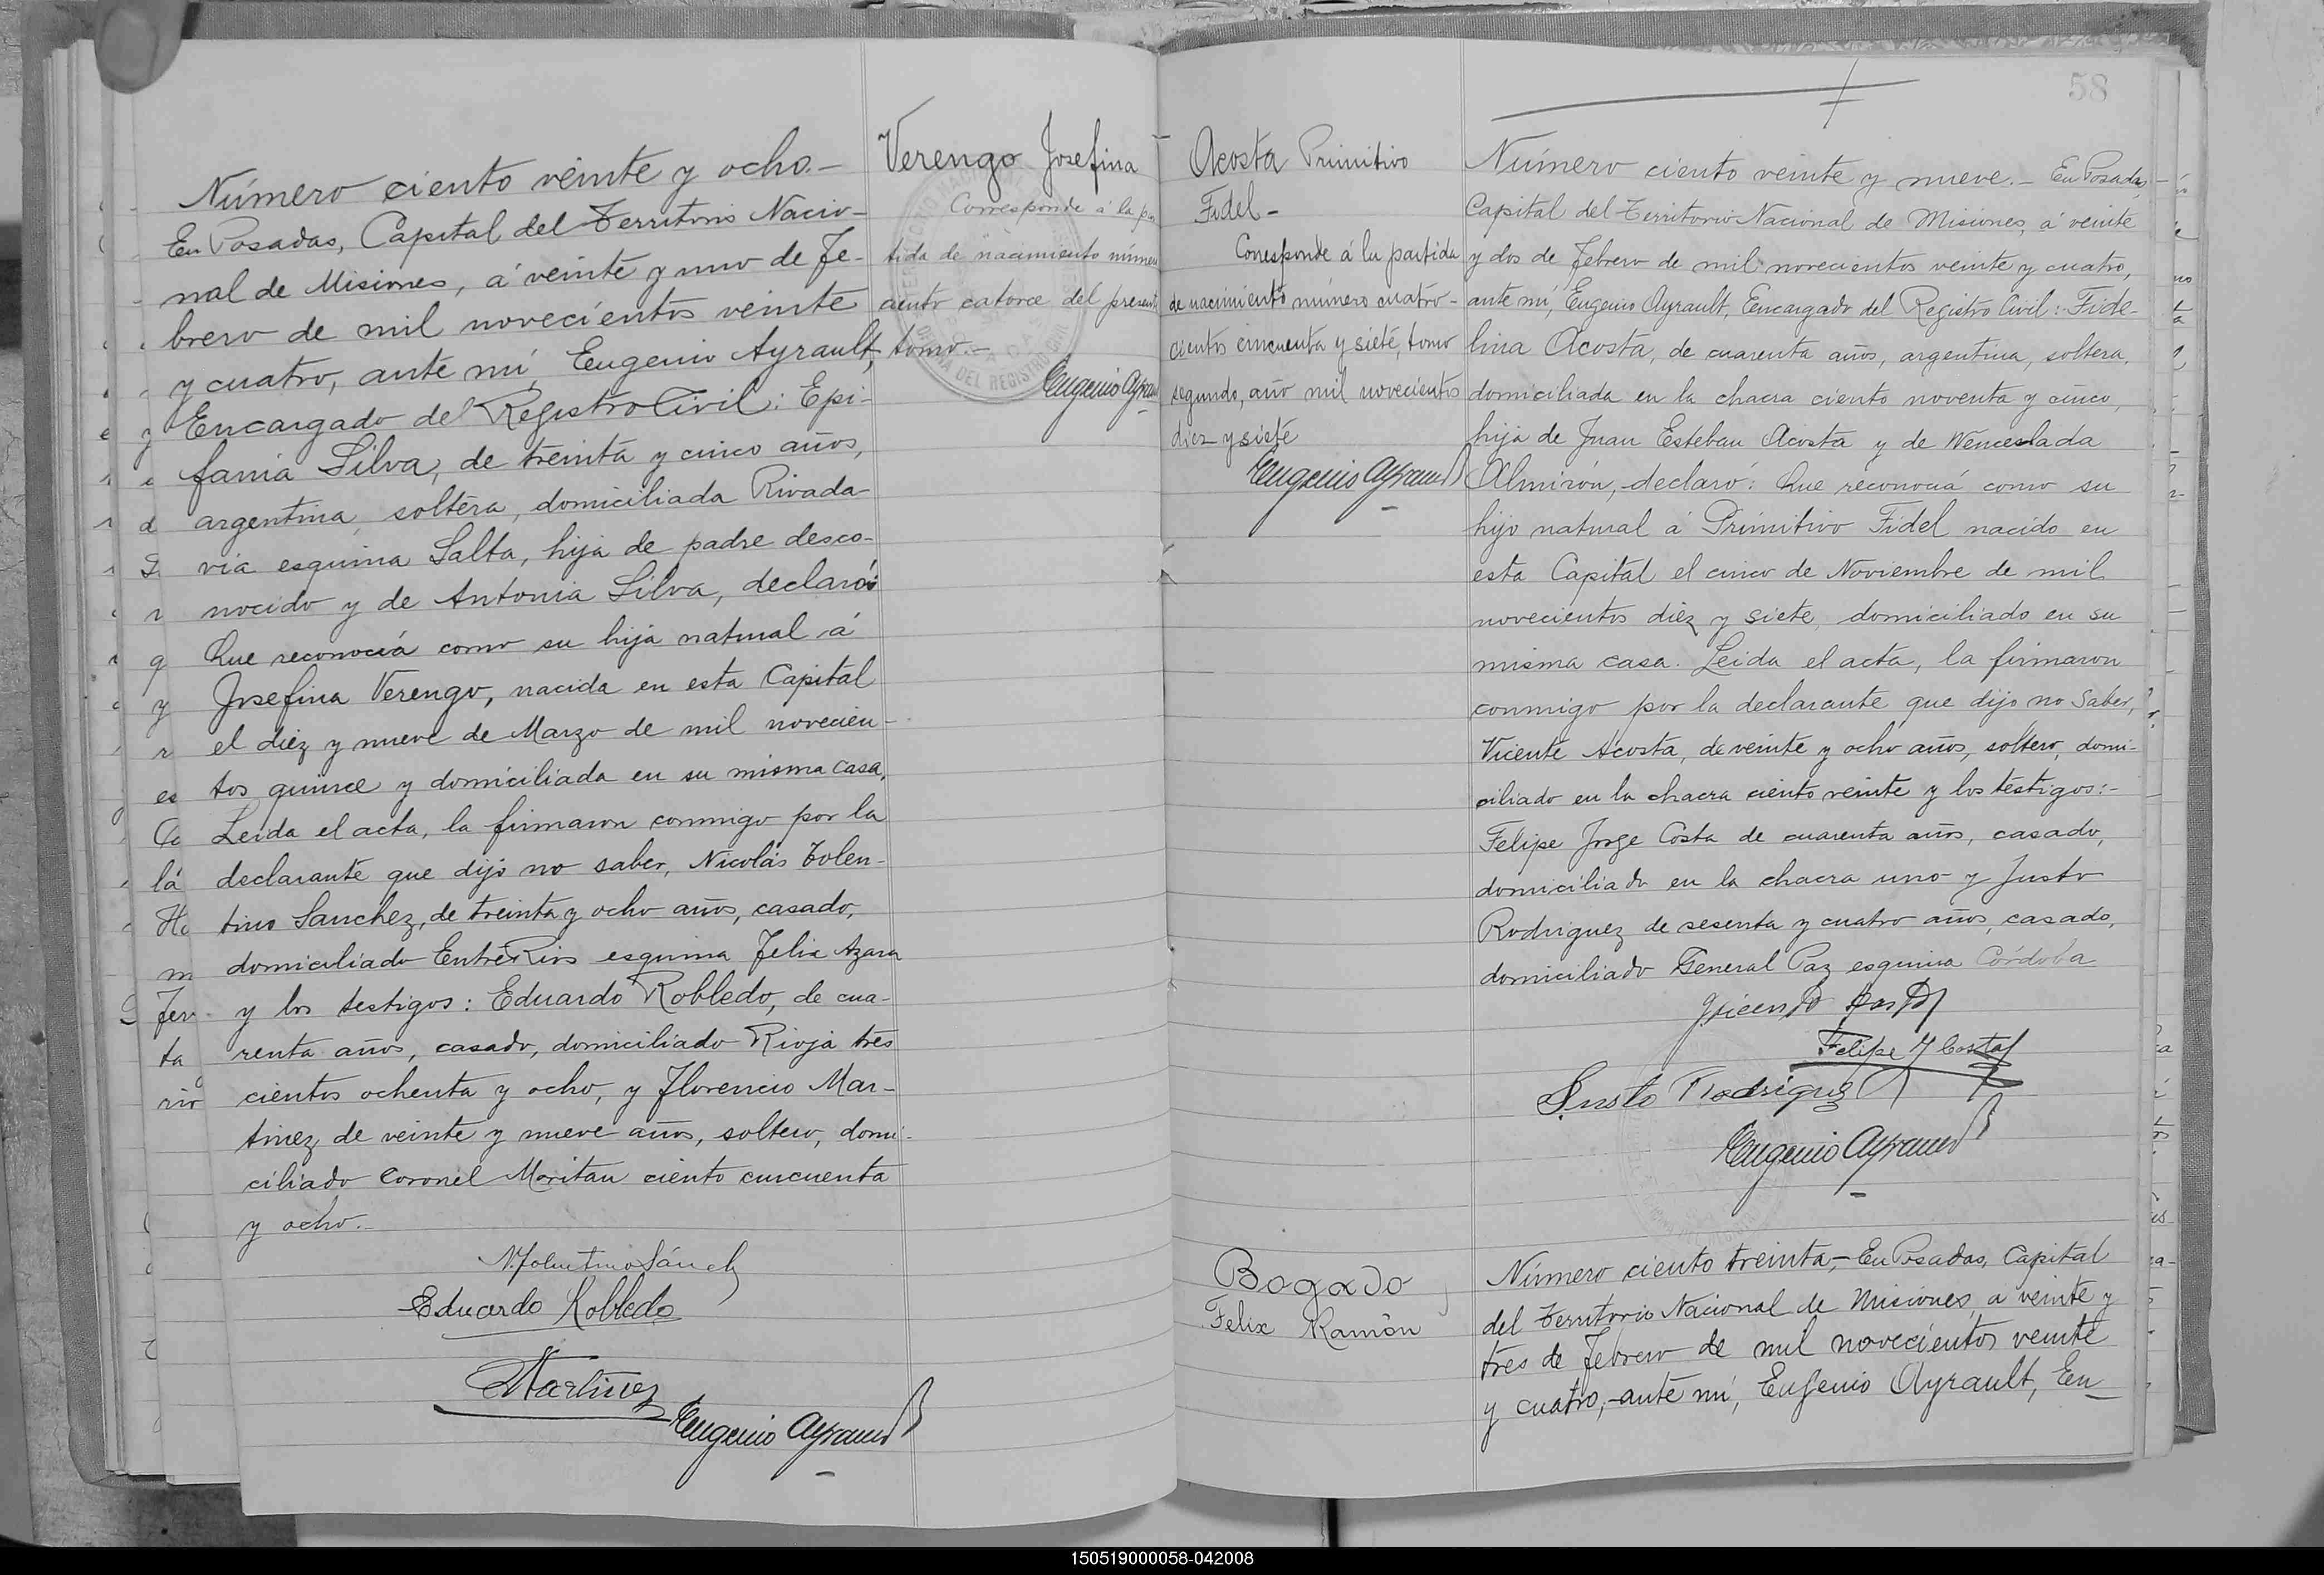 Número ciento veinte y ocho.-
En Posadas, Capital del Territorio Nacio-
nal de Misiones, á veinte y uno de Fe-
brero de mil novecientos veinte
y cuatro, ante mí, Eugenio Ayrault,
Encargado del Registro Civil: Epi-
fania Silva, de treinta y cinco años,
argentina, soltera, domiciliada Rivada-
via esquina Salta, hija de padre desco-
nocido y de Antonia Silva, declaró:
Que reconocía como su hija natural á
Josefina Verengo, nacida en esta Capital
el diez y nueve de Marzo de mil novecien-
tos quince y domiciliada en su misma casa.
Leida el acta, la firmaron conmigo por la
declarante que dijo no saber, Nicolás Tolen-
tino Sanchez, de treinta y ocho años, casado,
domiciliado Entre Rios esquina Felix Azara
y los testigos: Eduardo Robledo, de cua-
renta años, casado, domiciliado Rioja tres
cientos ochenta y ocho, y Florencio Mar-
tinez de veinte y nueve años, soltero, domi-
ciliado Coronel Moritan ciento cincuenta
y ocho.-
N. Tolentino Sánch
Eduardo Robledo
Martinez
Eugenio Ayrault
Verengo Josefina
Corresponde á la par
tida de nacimiento número
ciento catorce del presente
tomo.-
DEL REGISTRO CIVIL
Eugenio Ayrau
58
Acosta Primitivo
Fidel-
Corresponde á la partida
de nacimiento número cuatro-
cientos cincuenta y siete, tomo
segundo, año mil novecientos
diez y siete
Eugenio Ayrault
Número ciento veinte y nueve.- En Posadas,
Capital del Territorio Nacional de Misiones, á veinte
y dos de Febrero de mil novecientos veinte y cuatro,
ante mí, Eugenio Ayrault, Encargado del Registro Civil: Fide-
lina Acosta, de cuarenta años, argentina, soltera,
domiciliada en la chacra ciento noventa y cinco,
hija de Juan Esteban Acosta y de Wenceslada
Almirón, declaró: Que reconocía como su
hijo natural á Primitivo Fidel nacido en
esta Capital el cinco de Noviembre de mil
novecientos diez y siete, domiciliado en su
misma casa. Leida el acta, la firmaron
conmigo por la declarante que dijo no saber,
Vicente Acosta, de veinte y ocho años, soltero, domi-
ciliado en la chacra ciento veinte y los testigos:-
Felipe Jorge Costa de cuarenta años, casado,
domiciliado en la chacra uno y Justo
Rodriguez de sesenta y cuatro años, casado,
domiciliado General Paz esquina Córdoba
Felipe J Costa
Justo Rodriguez
Eugenio Ayrault
Bogado
Felix Ramón
Número ciento treinta,- En Posadas, Capital
del Territorio Nacional de Misiones, a veinte y
tres de Febrero de mil novecientos veinte
y cuatro,- ante mí, Eugenio Ayrault, En-
150519000058-042008